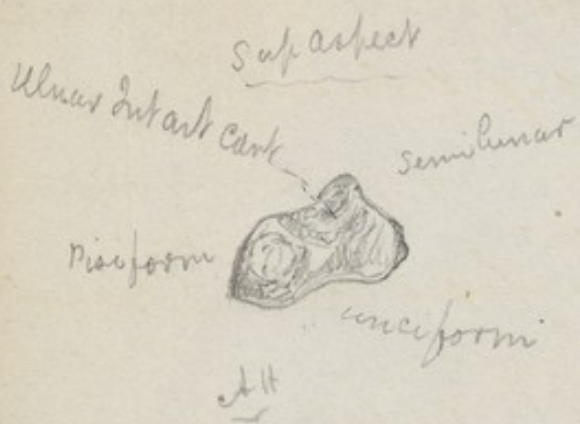 Sup Aspect
Ulnar Int Art Cart
Semilunar
Pisiform
Unciform
AH